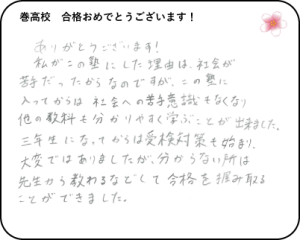 巻高校　合格おめでとうございます！
ありがとうございます！
私がこの塾にした理由は、社会が
苦手だったからなのですが、この塾に
入ってからは社会への苦手意識もなくなり
他の教科も分かりやすく学ぶことが出来ました。
三年生になってからは受検対策も始まり、
大変ではありましたが、分からない所は
先生から教わるなどして合格を掴み取る
ことができました。